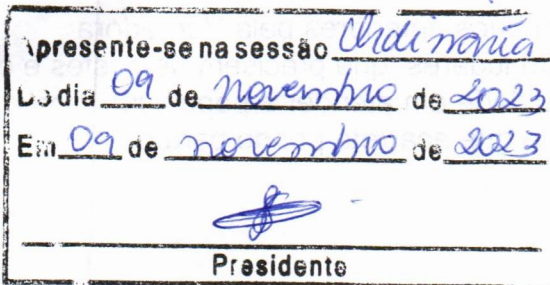 Apresente-se na sessão Ordinária
Do dia 09 de novembro de 2023
Em 09 de novembro de 2023
Presidente